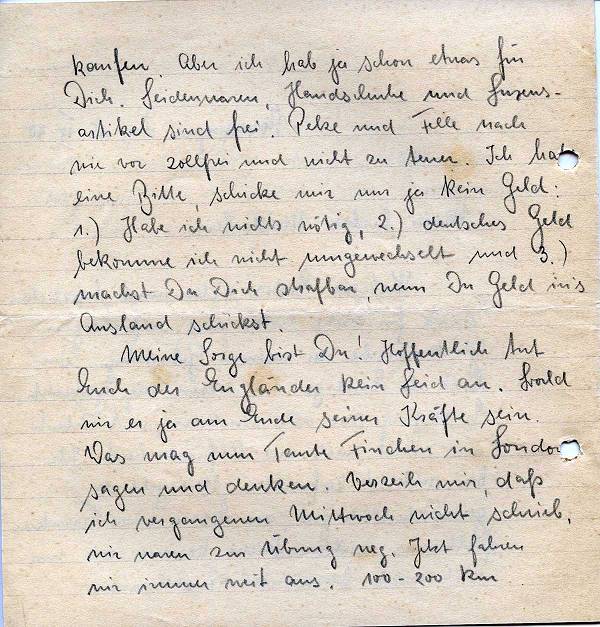 kaufen. Aber ich hab ja schon etwas für
Dich. Seidenwaren, Handschuhe und Luxus-
artikel sind frei. Pelze und Felle nach
wie vor zollfrei und nicht zu teuer. Ich hab
eine Bitte, schicke mir nur ja kein Geld:
1.) Habe ich nichts nötig, 2.) deutsches Geld
bekomme ich nicht umgewechselt und 3.)
machst Du Dich strafbar, wenn Du Geld in's
Ausland schickst.
Meine Sorge bist Du! Hoffentlich tut
Euch der Engländer kein Leid an. Bald
wir er ja am Ende seiner Kräfte sein.
Was mag nun Tante Finchen in London
sagen und denken. Verzeih mir, daß
ich vergangenen Mittwoch nicht schrieb,
wir waren zur Übung weg. Jetzt fahren
wir immer weit aus. 100-200 km